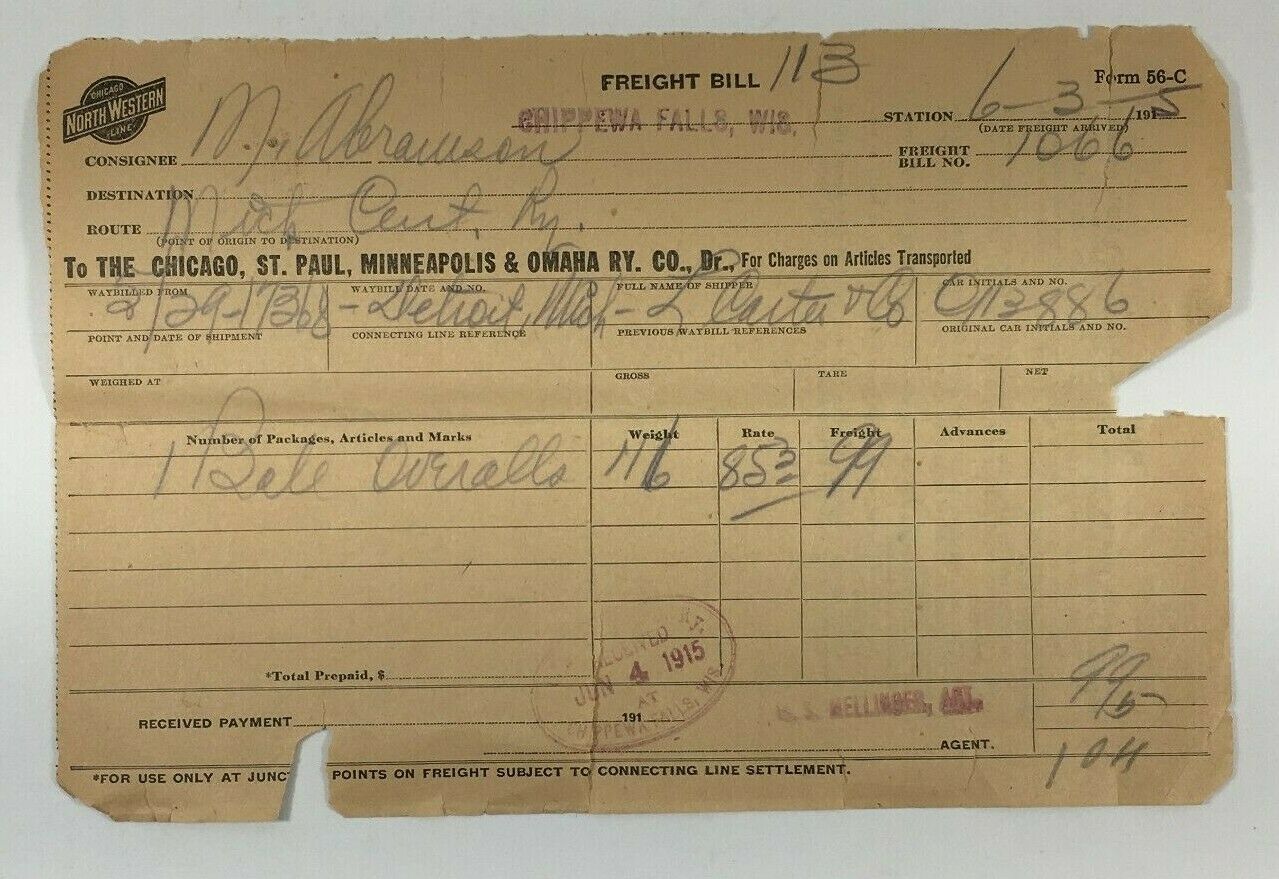 FREIGHT BILL 113
Form 56-C
CHICAGO
NORTH WESTERN
LINE
CHIPPEWA FALLS, WIS.
STATION 6-3-5 191
(DATE FREIGHT ARRIVED)
CONSIGNEE M. Abramson
FREIGHT BILL NO. 1066
DESTINATION
ROUTE Mich Cent, Ry.
(POINT OF ORIGIN TO DESTINATION)
To THE CHICAGO, ST. PAUL, MINNEAPOLIS & OMAHA RY. CO., Dr., For Charges on Articles Transported
WAYBILLED FROM WAYBILL DATE AND NO. FULL NAME OF SHIPPER CAR INITIALS AND NO.
Detroit, Mich - L Carter & Co
POINT AND DATE OF SHIPMENT CONNECTING LINE REFERENCE PREVIOUS WAYBILL REFERENCES ORIGINAL CAR INITIALS AND NO.
WEIGHED AT GROSS TARE NET
Number of Packages, Articles and Marks Weight Rate Freight Advances Total
1 Bale Overalls 116 853 99
*Total Prepaid, $
JUN 4 1915
AT
CHIPPEWA FALLS, WIS.
99
5
RECEIVED PAYMENT 191
MELLINGER, AGT.
AGENT.
104
*FOR USE ONLY AT JUNCT POINTS ON FREIGHT SUBJECT TO CONNECTING LINE SETTLEMENT.